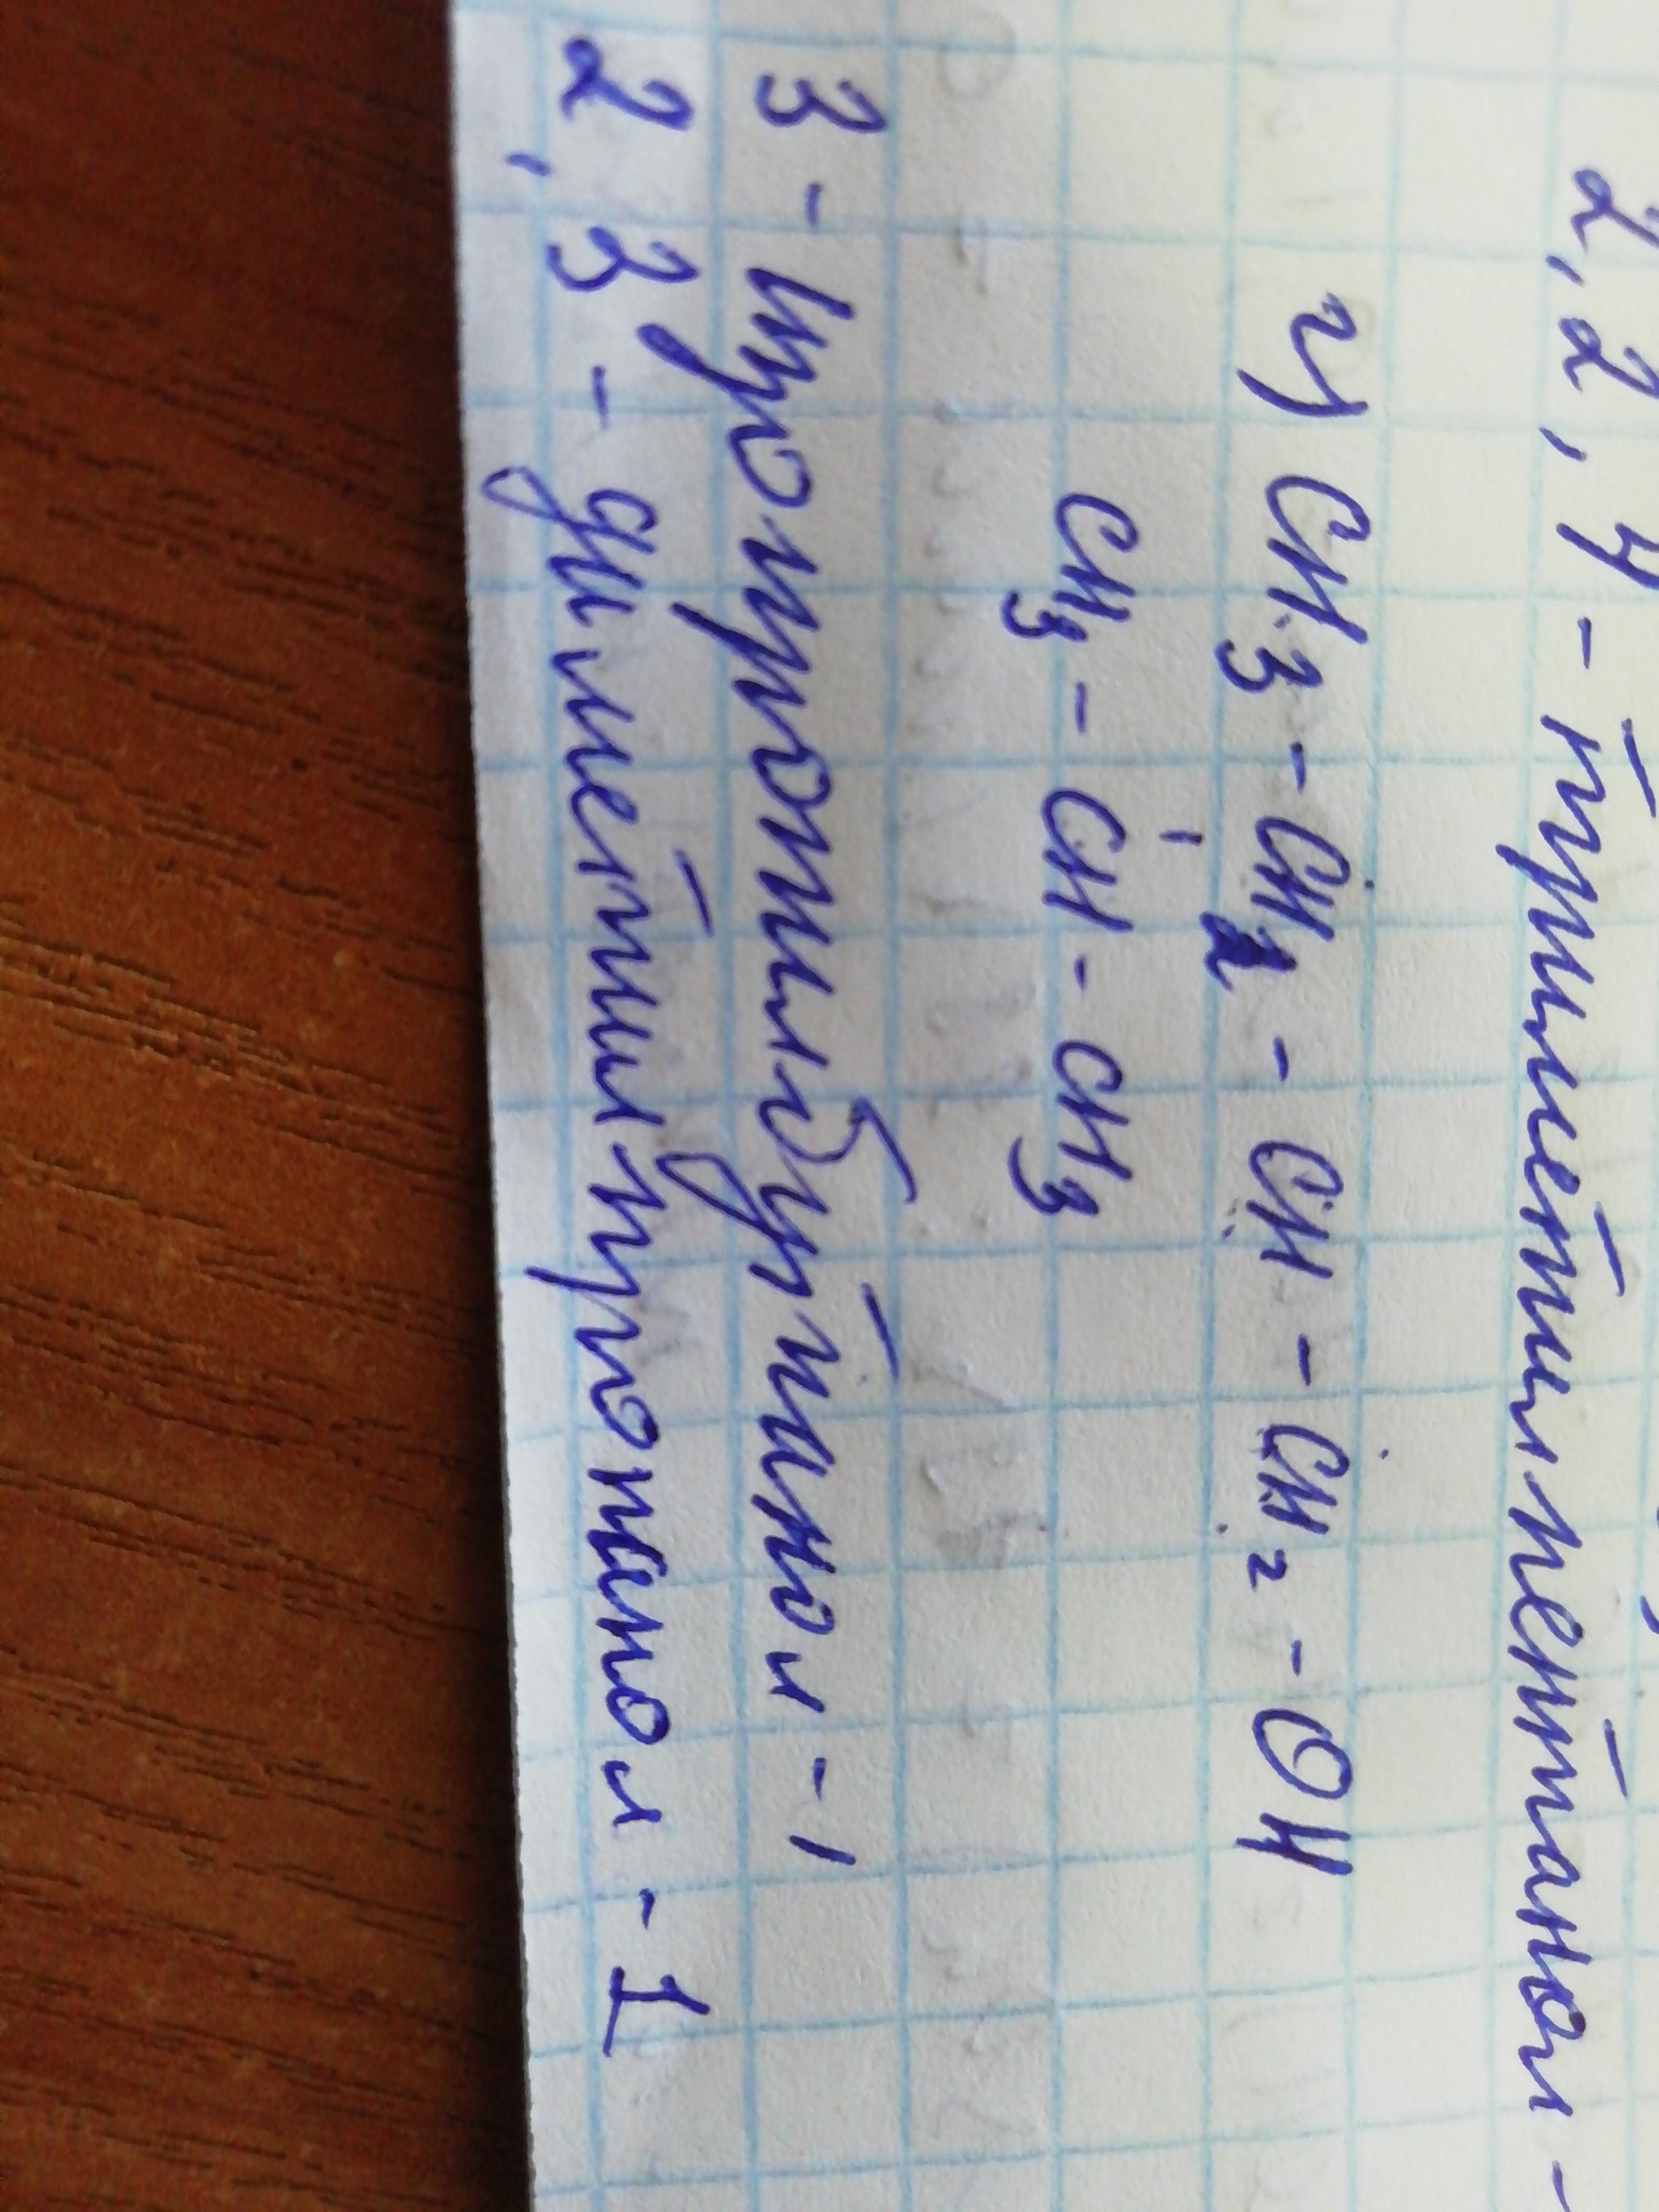 2,2,4-триметилпентанол-
г) CH₃-CH₂-CH-CH₂-OH
CH₃-CH-CH₃
3-пропилбутинол-1
2,3-диметилпропанол-1